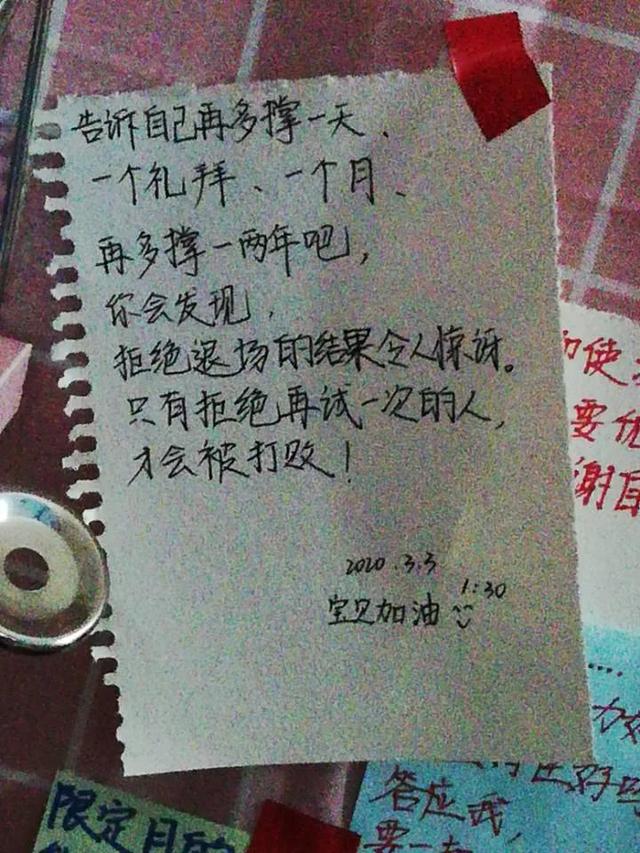 告诉自己再多撑一天、
一个礼拜、一个月、
再多撑一两年吧,
你会发现,
拒绝退场的结果令人惊讶。
只有拒绝再试一次的人,
才会被打败!
2020.3.3
1:30
宝贝加油
使
要优
谢自
....
力好
答应我,
要一
限定目的